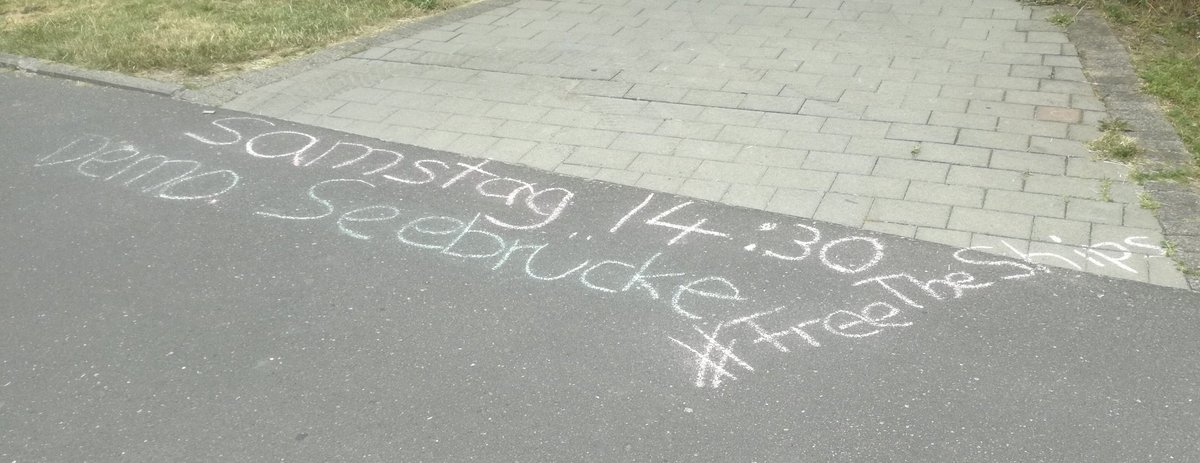 Samstag 14:30
Demo Seebrücke
#FreeTheShips